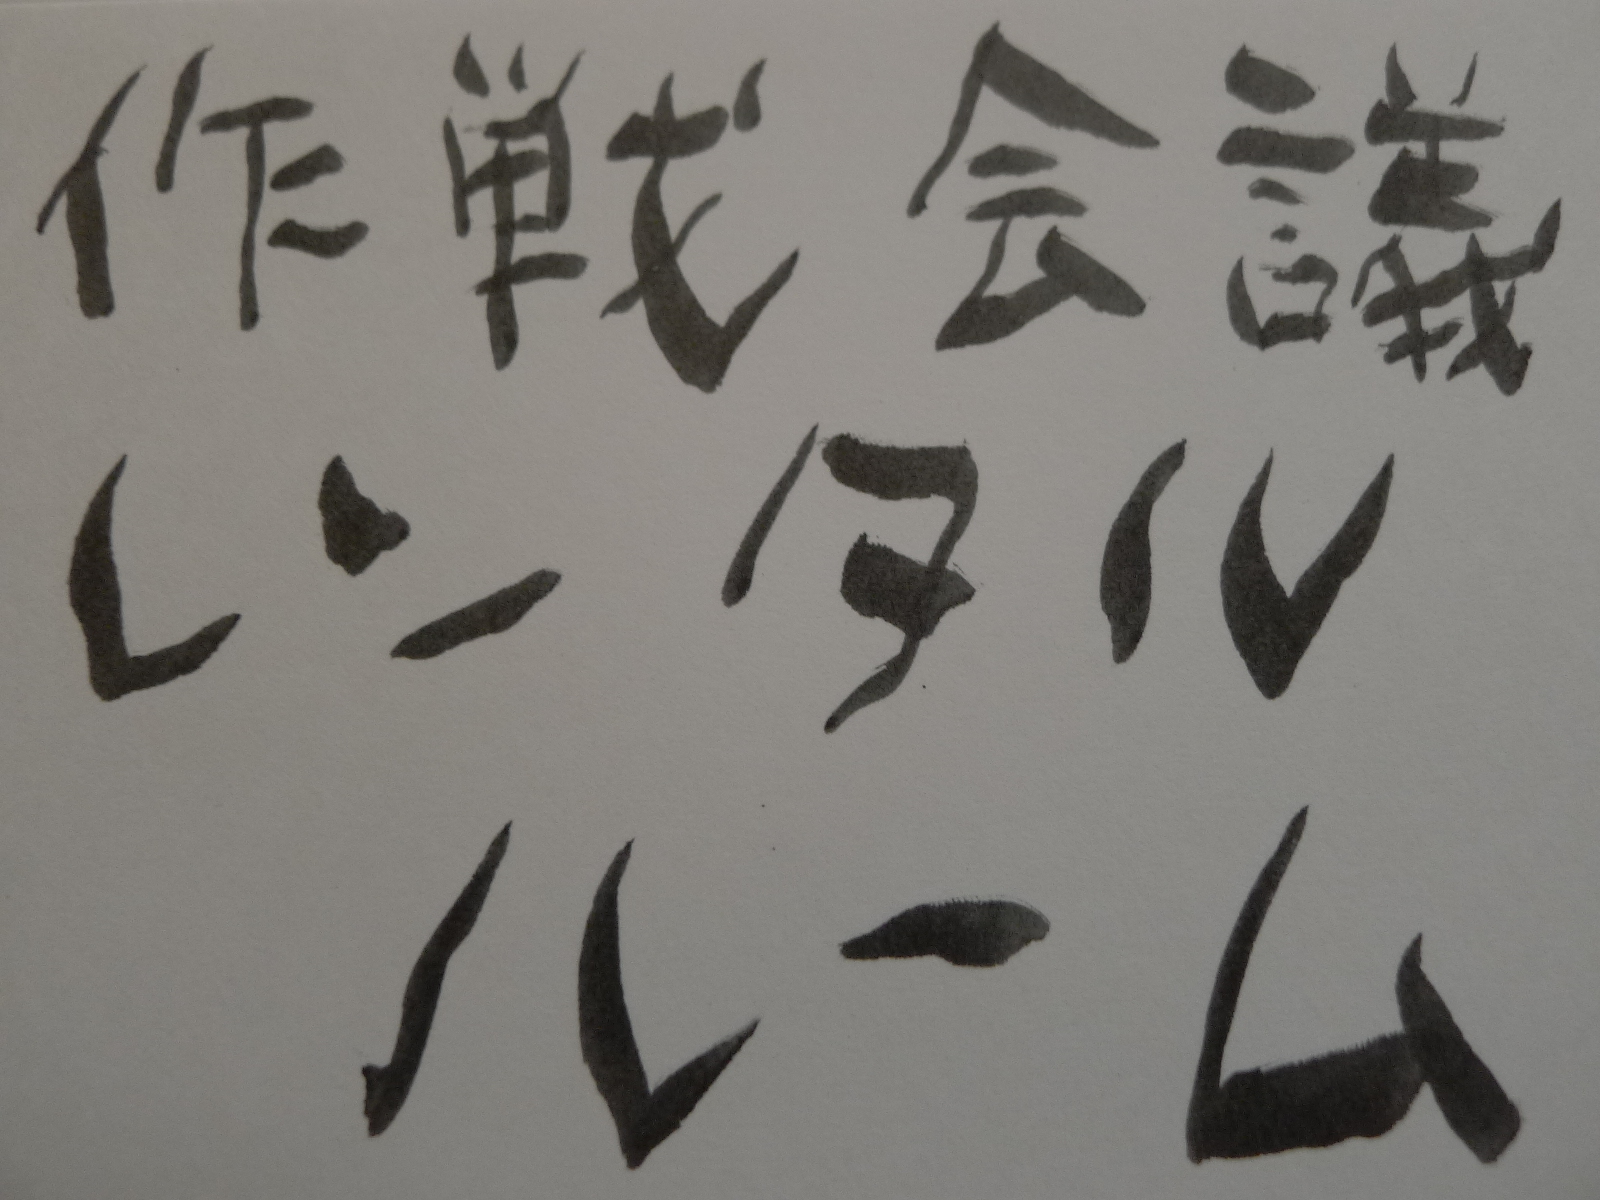 作戦会議
レンタル
ルーム